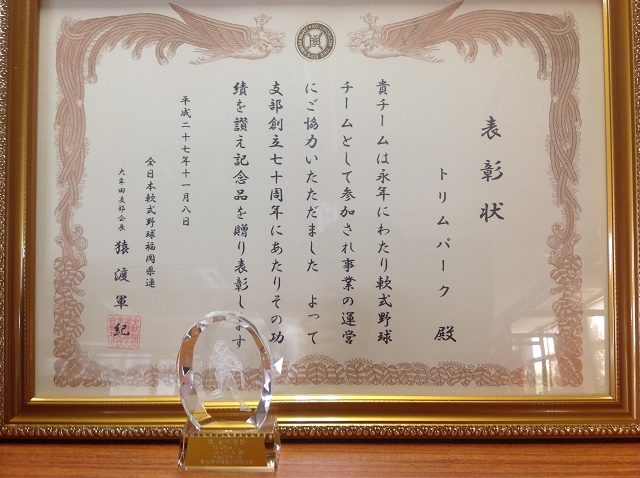 表彰状
トリムパーク 殿
貴チームは永年にわたり軟式野球
チームとして参加され事業の運営
にご協力いただきました よって
支部創立七十周年にあたりその功
績を讃え記念品を贈り表彰します
平成二十七年十一月八日
全日本軟式野球福岡県連
大牟田支部会長 猿渡軍紀